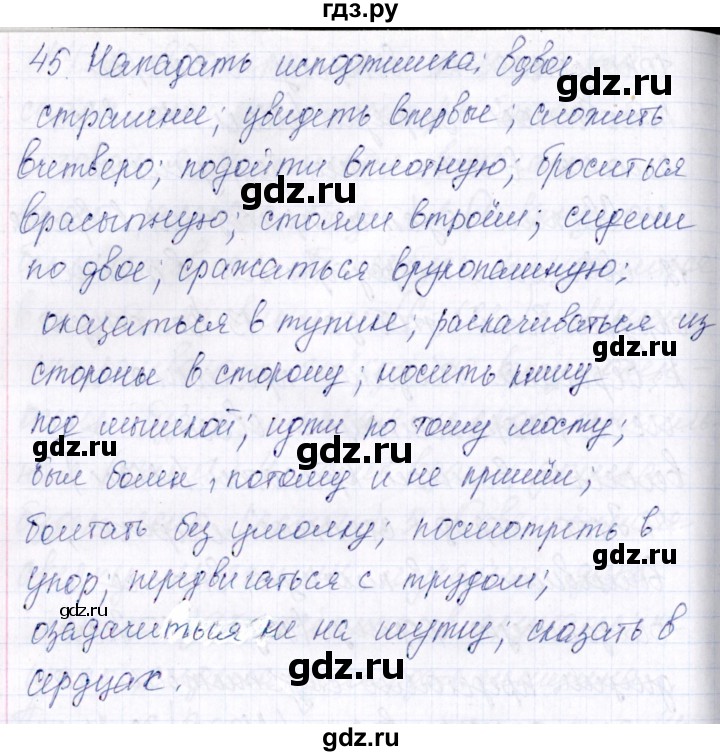 гдз.ру
45. Нападать исподтишка; вдвое
gdz.ru
страшнее; увидеть впервые; сложить
gdz.ru
вчетверо; подойти вплотную; броситься
gdz.ru
врассыпную; стояли втроём; сидели
по двое; сражаться врукопашную;
оказаться в тупике; раскачиваться из
gdz.ru
стороны в сторону; носить книгу
под мышкой; идти по тому мосту;
gdz.ru
gdz.ru
был болен, потому и не пришёл;
болтать без умолку; посмотреть в
gdz.ru
упор; передвигаться с трудом;
gdz.ru
озадачиться не на шутку; сказать в
gdz.ru
сердцах.
gdz.ru